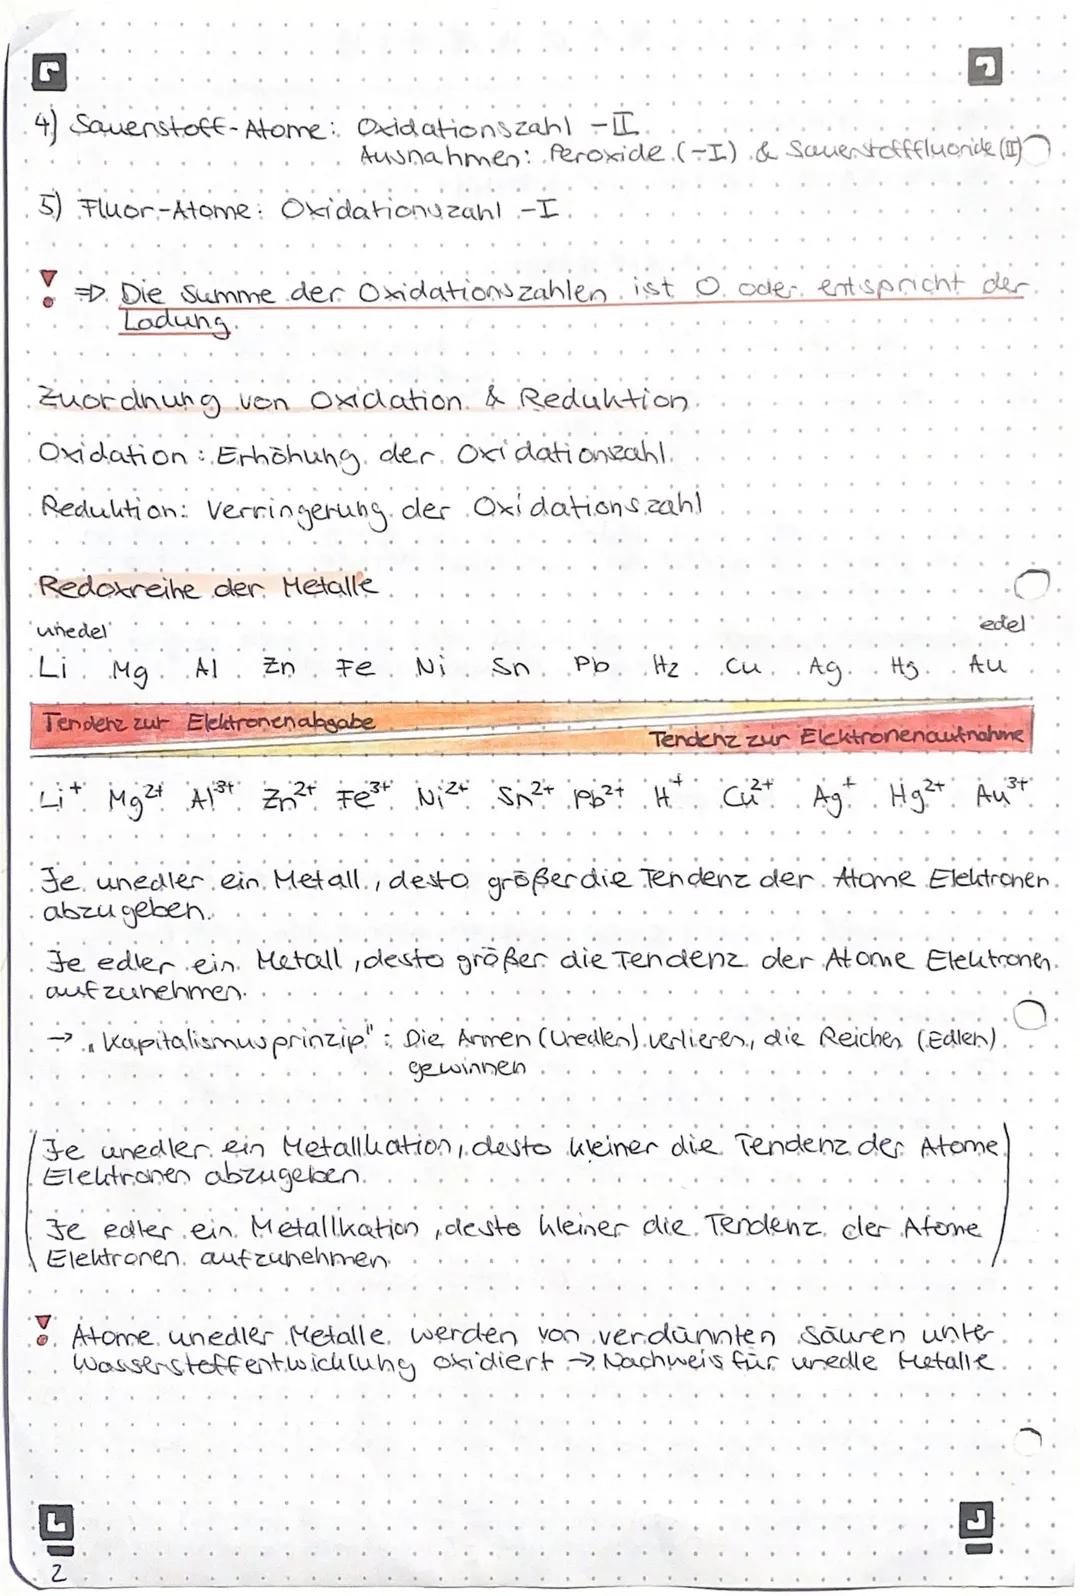 4) Sauerstoff-Atome: Oxidationszahl -II
Ausnahmen: Peroxide (-I) & Sauerstofffluoride (II)
5) Fluor-Atome: Oxidationszahl -I
! ⇒ Die Summe der Oxidationszahlen ist 0 oder entspricht der
Ladung.
Zuordnung von Oxidation & Reduktion
Oxidation: Erhöhung der Oxidationszahl
Reduktion: Verringerung der Oxidationszahl
Redoxreihe der Metalle
unedel edel
Li Mg Al Zn Fe Ni Sn Pb H2 Cu Ag Hg Au
Tendenz zur Elektronenabgabe
Tendenz zur Elektronenaufnahme
Li⁺ Mg²⁺ Al³⁺ Zn²⁺ Fe³⁺ Ni²⁺ Sn²⁺ Pb²⁺ H⁺ Cu²⁺ Ag⁺ Hg²⁺ Au³⁺
Je unedler ein Metall, desto größer die Tendenz der Atome Elektronen
abzugeben.
Je edler ein Metall, desto größer die Tendenz der Atome Elektronen
aufzunehmen.
→ „Kapitalismusprinzip": Die Armen (Unedlen) verlieren, die Reichen (Edlen)
gewinnen
Je unedler ein Metallkation, desto kleiner die Tendenz der Atome
Elektronen abzugeben.
Je edler ein Metallkation, desto kleiner die Tendenz der Atome
Elektronen aufzunehmen
! Atome unedler Metalle werden von verdünnten Säuren unter
Wasserstoffentwicklung oxidiert → Nachweis für unedle Metalle
2